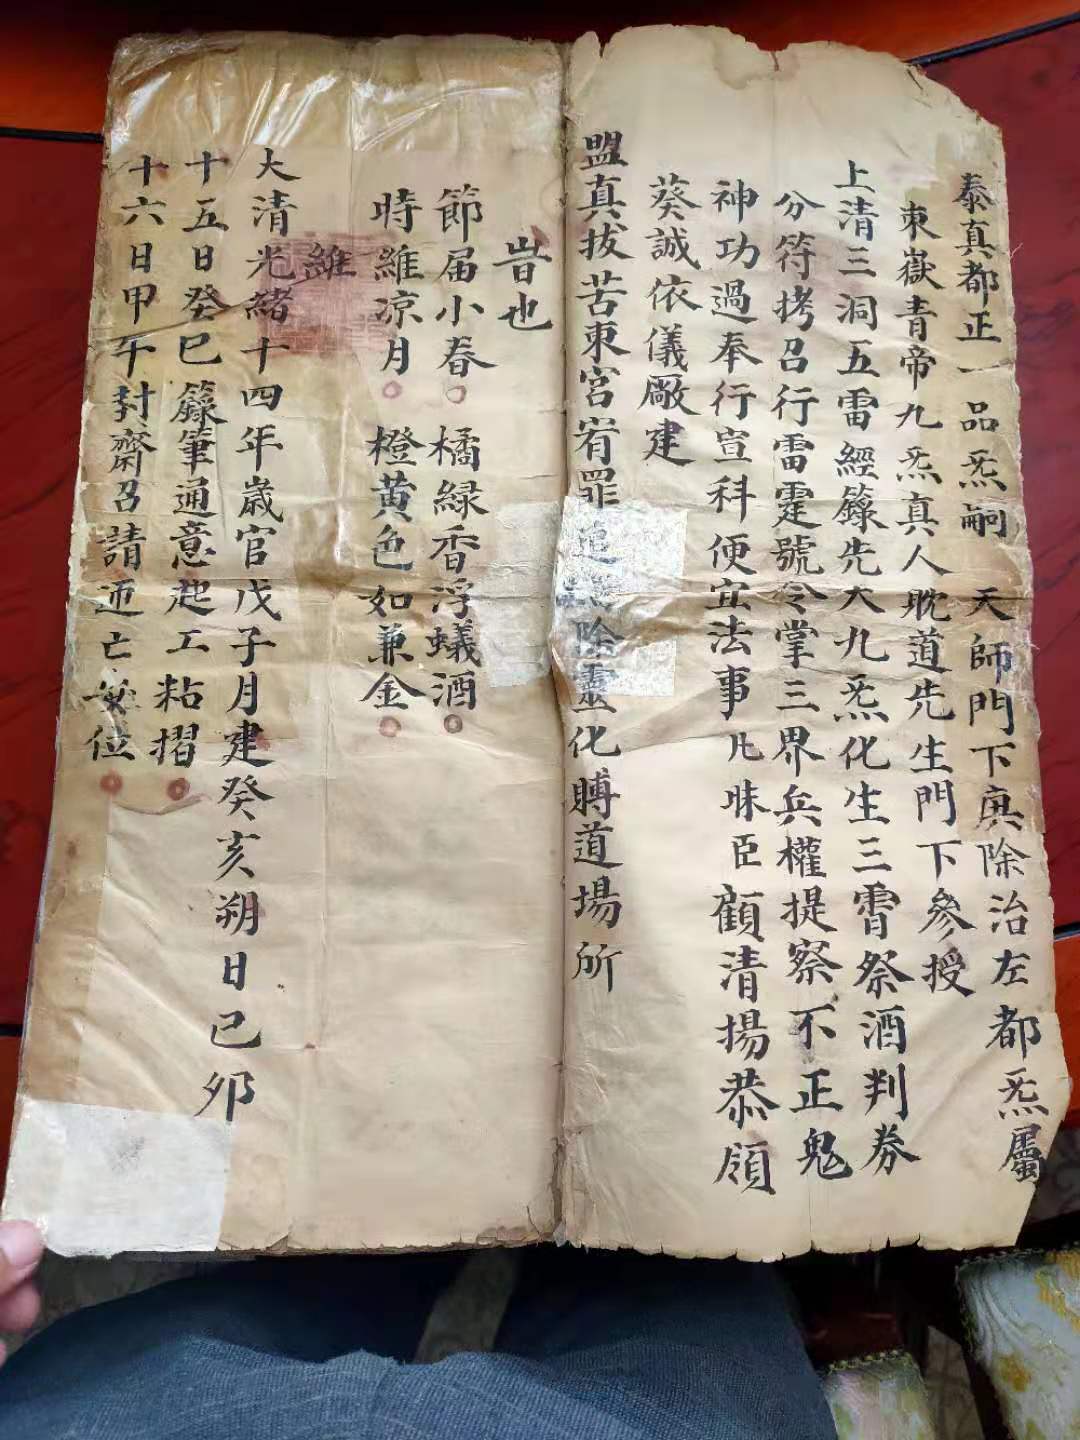 泰真都正一品炁嗣 天師門下奥除治左都炁屬
東嶽青帝九炁真人耽道先生門下參授
上清三洞五雷經籙先大九炁化生三霄祭酒判券
分符拷召行雷霆號令掌三界兵權提察不正鬼
神功過奉行宣科便宜法事凡昧臣顧清揚恭領
葵誠依儀厰建
盟真拔苦東宮宥罪追 除靈化賻道場所
旹也
節届小春 橘緑香浮蟻酒
時維凉月 橙黄色如兼金
維
大清光緒十四年歲官戊子月建癸亥朔日己夘
十五日癸巳籙筆通意起工粘摺
十六日甲午封齋召請 亡 位